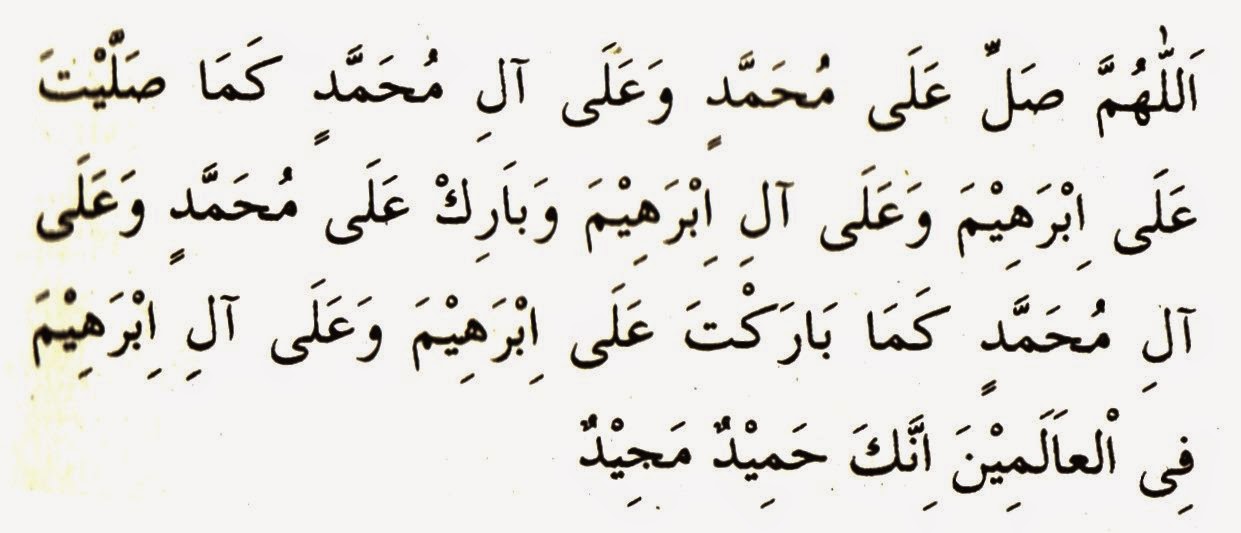 اَللّٰهُمَّ صَلِّ عَلَى مُحَمَّدٍ وَعَلَى آلِ مُحَمَّدٍ كَمَا صَلَّيْتَ
عَلَى اِبْرَهِيْمَ وَعَلَى آلِ اِبْرَهِيْمَ وَبَارِكْ عَلَى مُحَمَّدٍ وَعَلَى
آلِ مُحَمَّدٍ كَمَا بَارَكْتَ عَلَى اِبْرَهِيْمَ وَعَلَى آلِ اِبْرَهِيْمَ
فِى اْلعَالَمِيْنَ اِنَّكَ حَمِيْدٌ مَجِيْدٌ